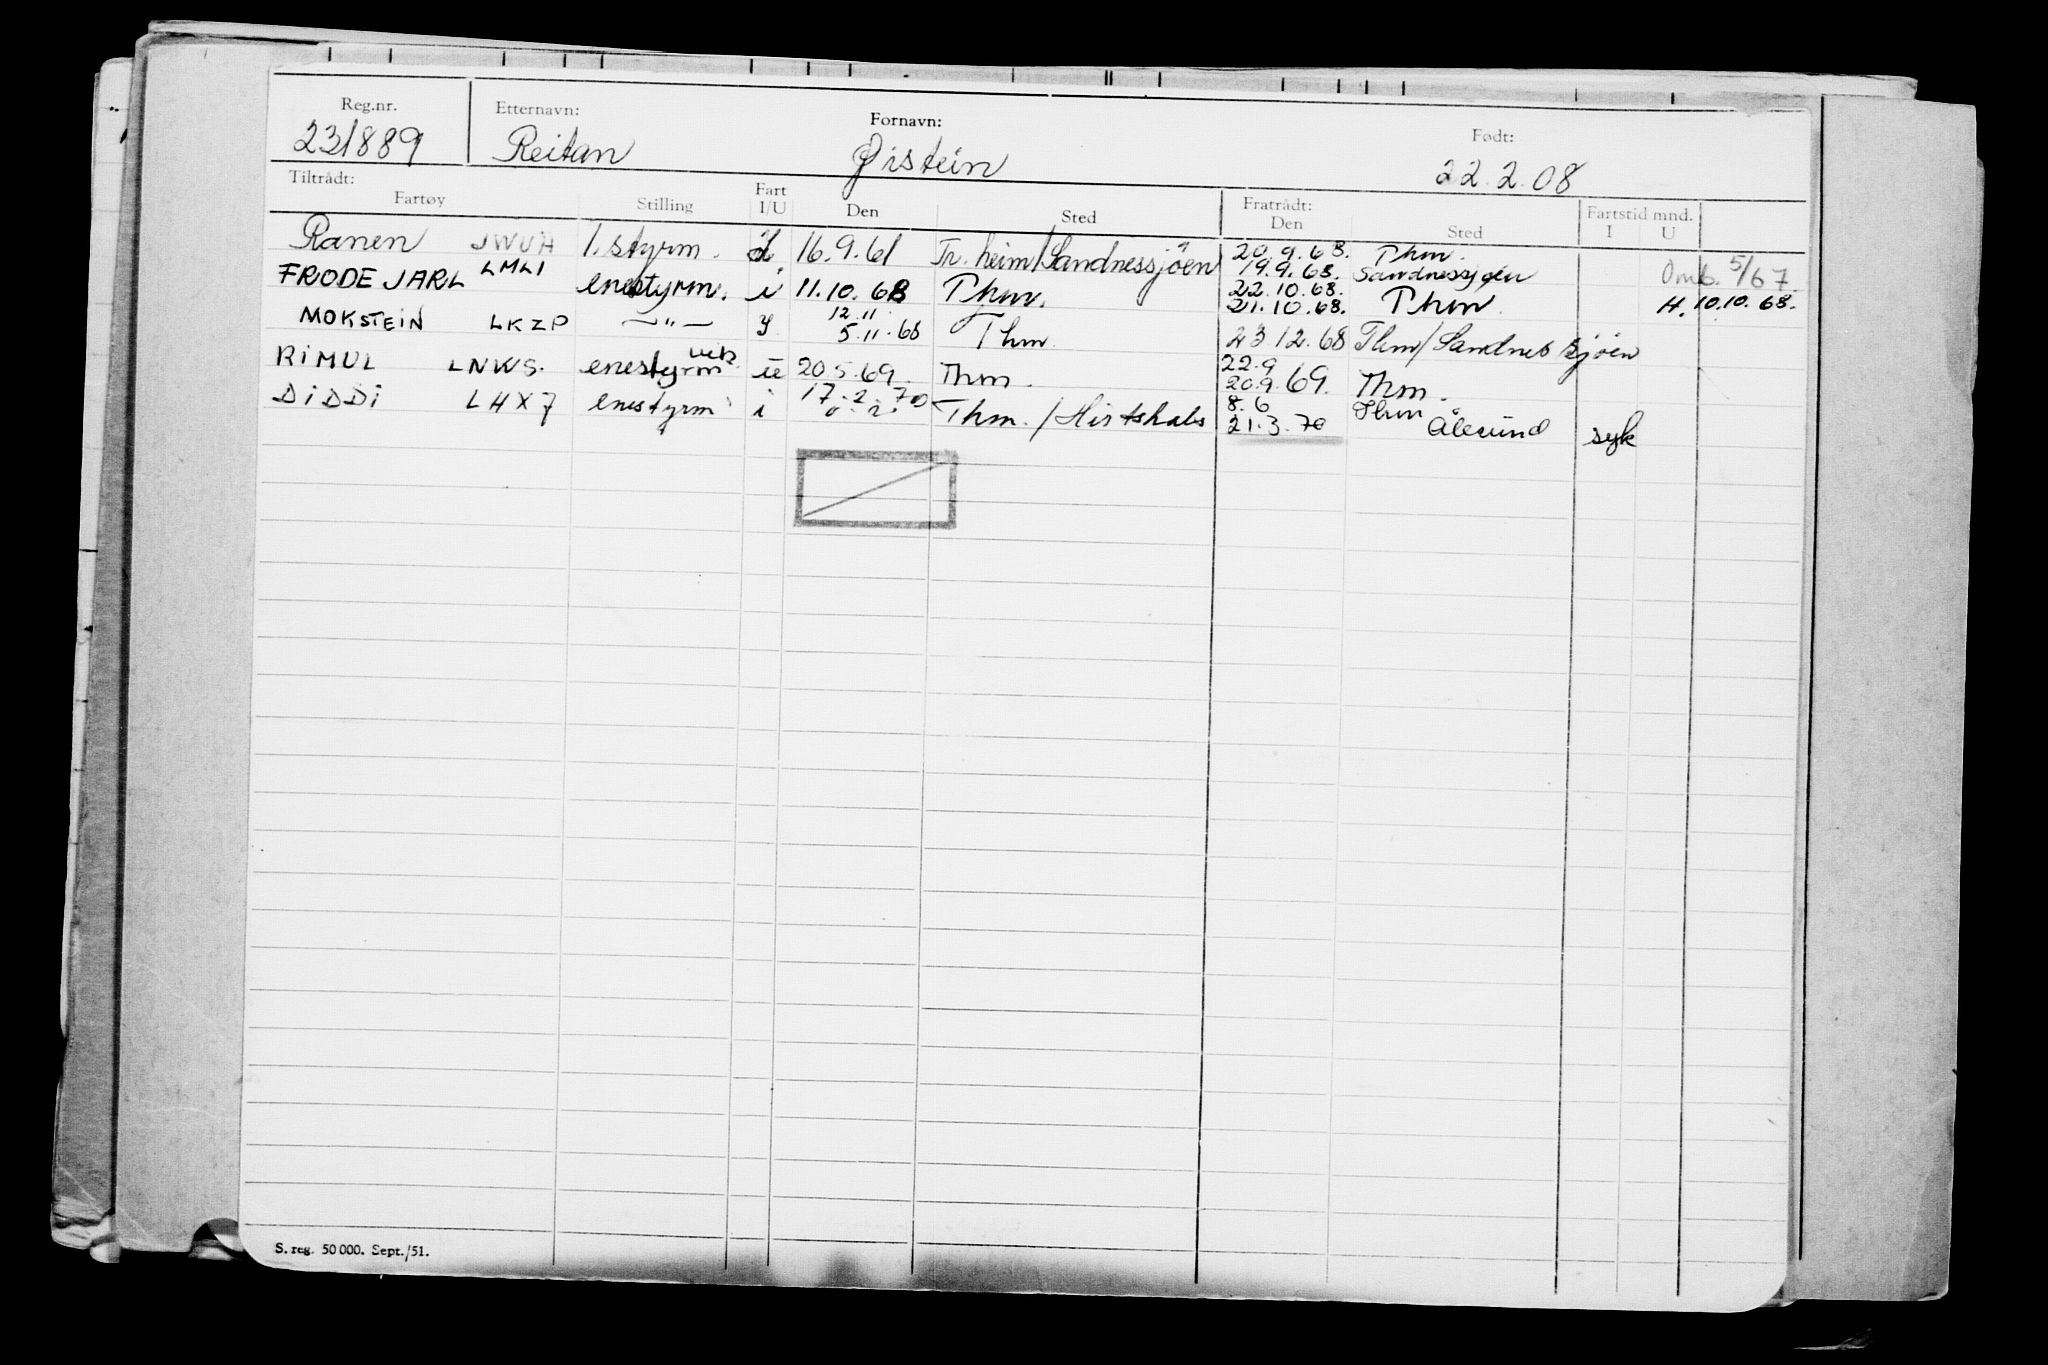 Reg.nr. Etternavn: Fornavn: Født:
23/889 Reitan Øistein 22.2.08
Tiltrådt: Fratrådt: Fartstid mnd.
Fartøy Stilling Fart I/U Den Sted Den Sted I U
Ranen JWUA 1. styrm. 16.9.61 Tr.heim/Sandnessjöen 20.9.68. Thm.
19.9.68. Sandnessjöen Omb. 5/67.
FRODE JARL LMLI enestyrm. i 11.10.68 Thm. 22.10.68.
21.10.68. Thm. H. 10.10.68.
12.11
MOKSTEIN LKZP —"— y 5.11.68 Thm. 23 12.68 Thm/Sandnessjöen
RIMUL LNWS. enestyrm vik. u 20.5.69. Thm. 22.9
20.9.69. Thm.
DiDDi LHX7 enestyrm i 17.2.70 Thm./Hirtshals 8.6 Thm
21.3.70 Ålesund syk
S. reg. 50 000. Sept./51.